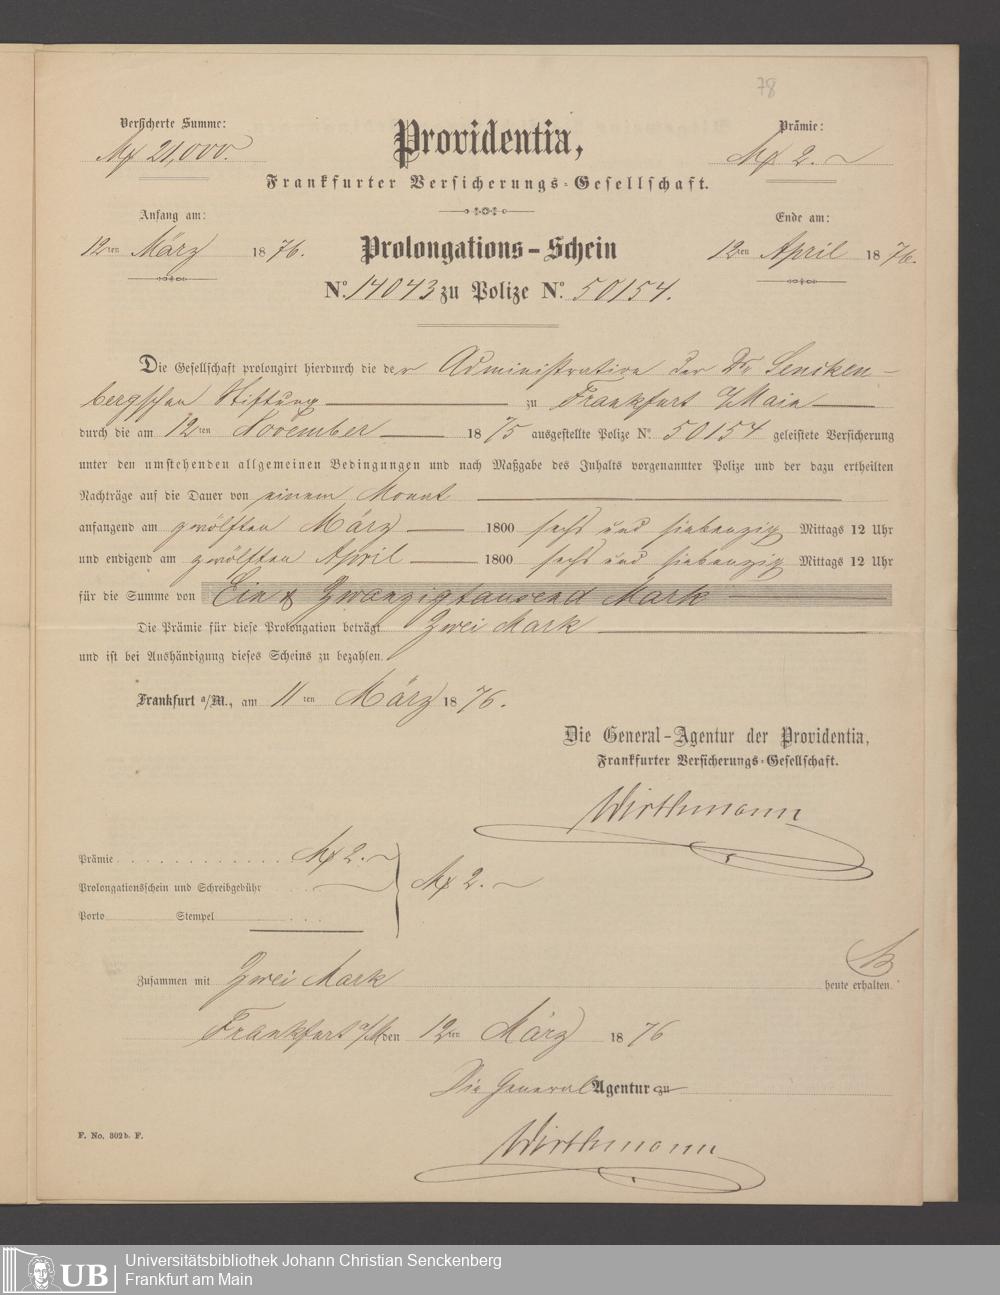 78
Versicherte Summe:
Mk 21,000.
Providentia,
Prämie:
Mk 2. ~
Frankfurter Versicherungs-Gesellschaft.
Anfang am:
12ten März 1876.
Ende am:
12ten April 1876.
Prolongations-Schein
No. 14043 zu Polize No. 50154.
Die Gesellschaft prolongirt hierdurch die der Administration der Dr. Sencken-
bergschen Stiftung zu Frankfurt a/Main
durch die am 12ten November 1875 ausgestellte Polize No. 50154 geleistete Versicherung
unter den umstehenden allgemeinen Bedingungen und nach Maßgabe des Inhalts vorgenannter Polize und der dazu ertheilten
Nachträge auf die Dauer von einem Monat
anfangend am zwölften März 1800 sechs und siebenzig Mittags 12 Uhr
und endigend am zwölften April 1800 sechs und siebenzig Mittags 12 Uhr
für die Summe von Ein & Zwanzigtausend Mark
Die Prämie für diese Prolongation beträgt Zwei Mark
und ist bei Aushändigung dieses Scheins zu bezahlen.
Frankfurt a/M., am 11ten März 1876.
Die General-Agentur der Providentia,
Frankfurter Versicherungs-Gesellschaft.
Wirthmann
Prämie . . . . . . . . . . . . Mk 2. ~
Prolongationsschein und Schreibgebühr . . . .
Mk 2. ~
Porto Stempel . . .
Zusammen mit Zwei Mark heute erhalten.
Frankfurt a/M den 12ten März 1876
Die General Agentur zu
F. No. 302b. F.
Wirthmann
UB
Universitätsbibliothek Johann Christian Senckenberg
Frankfurt am Main